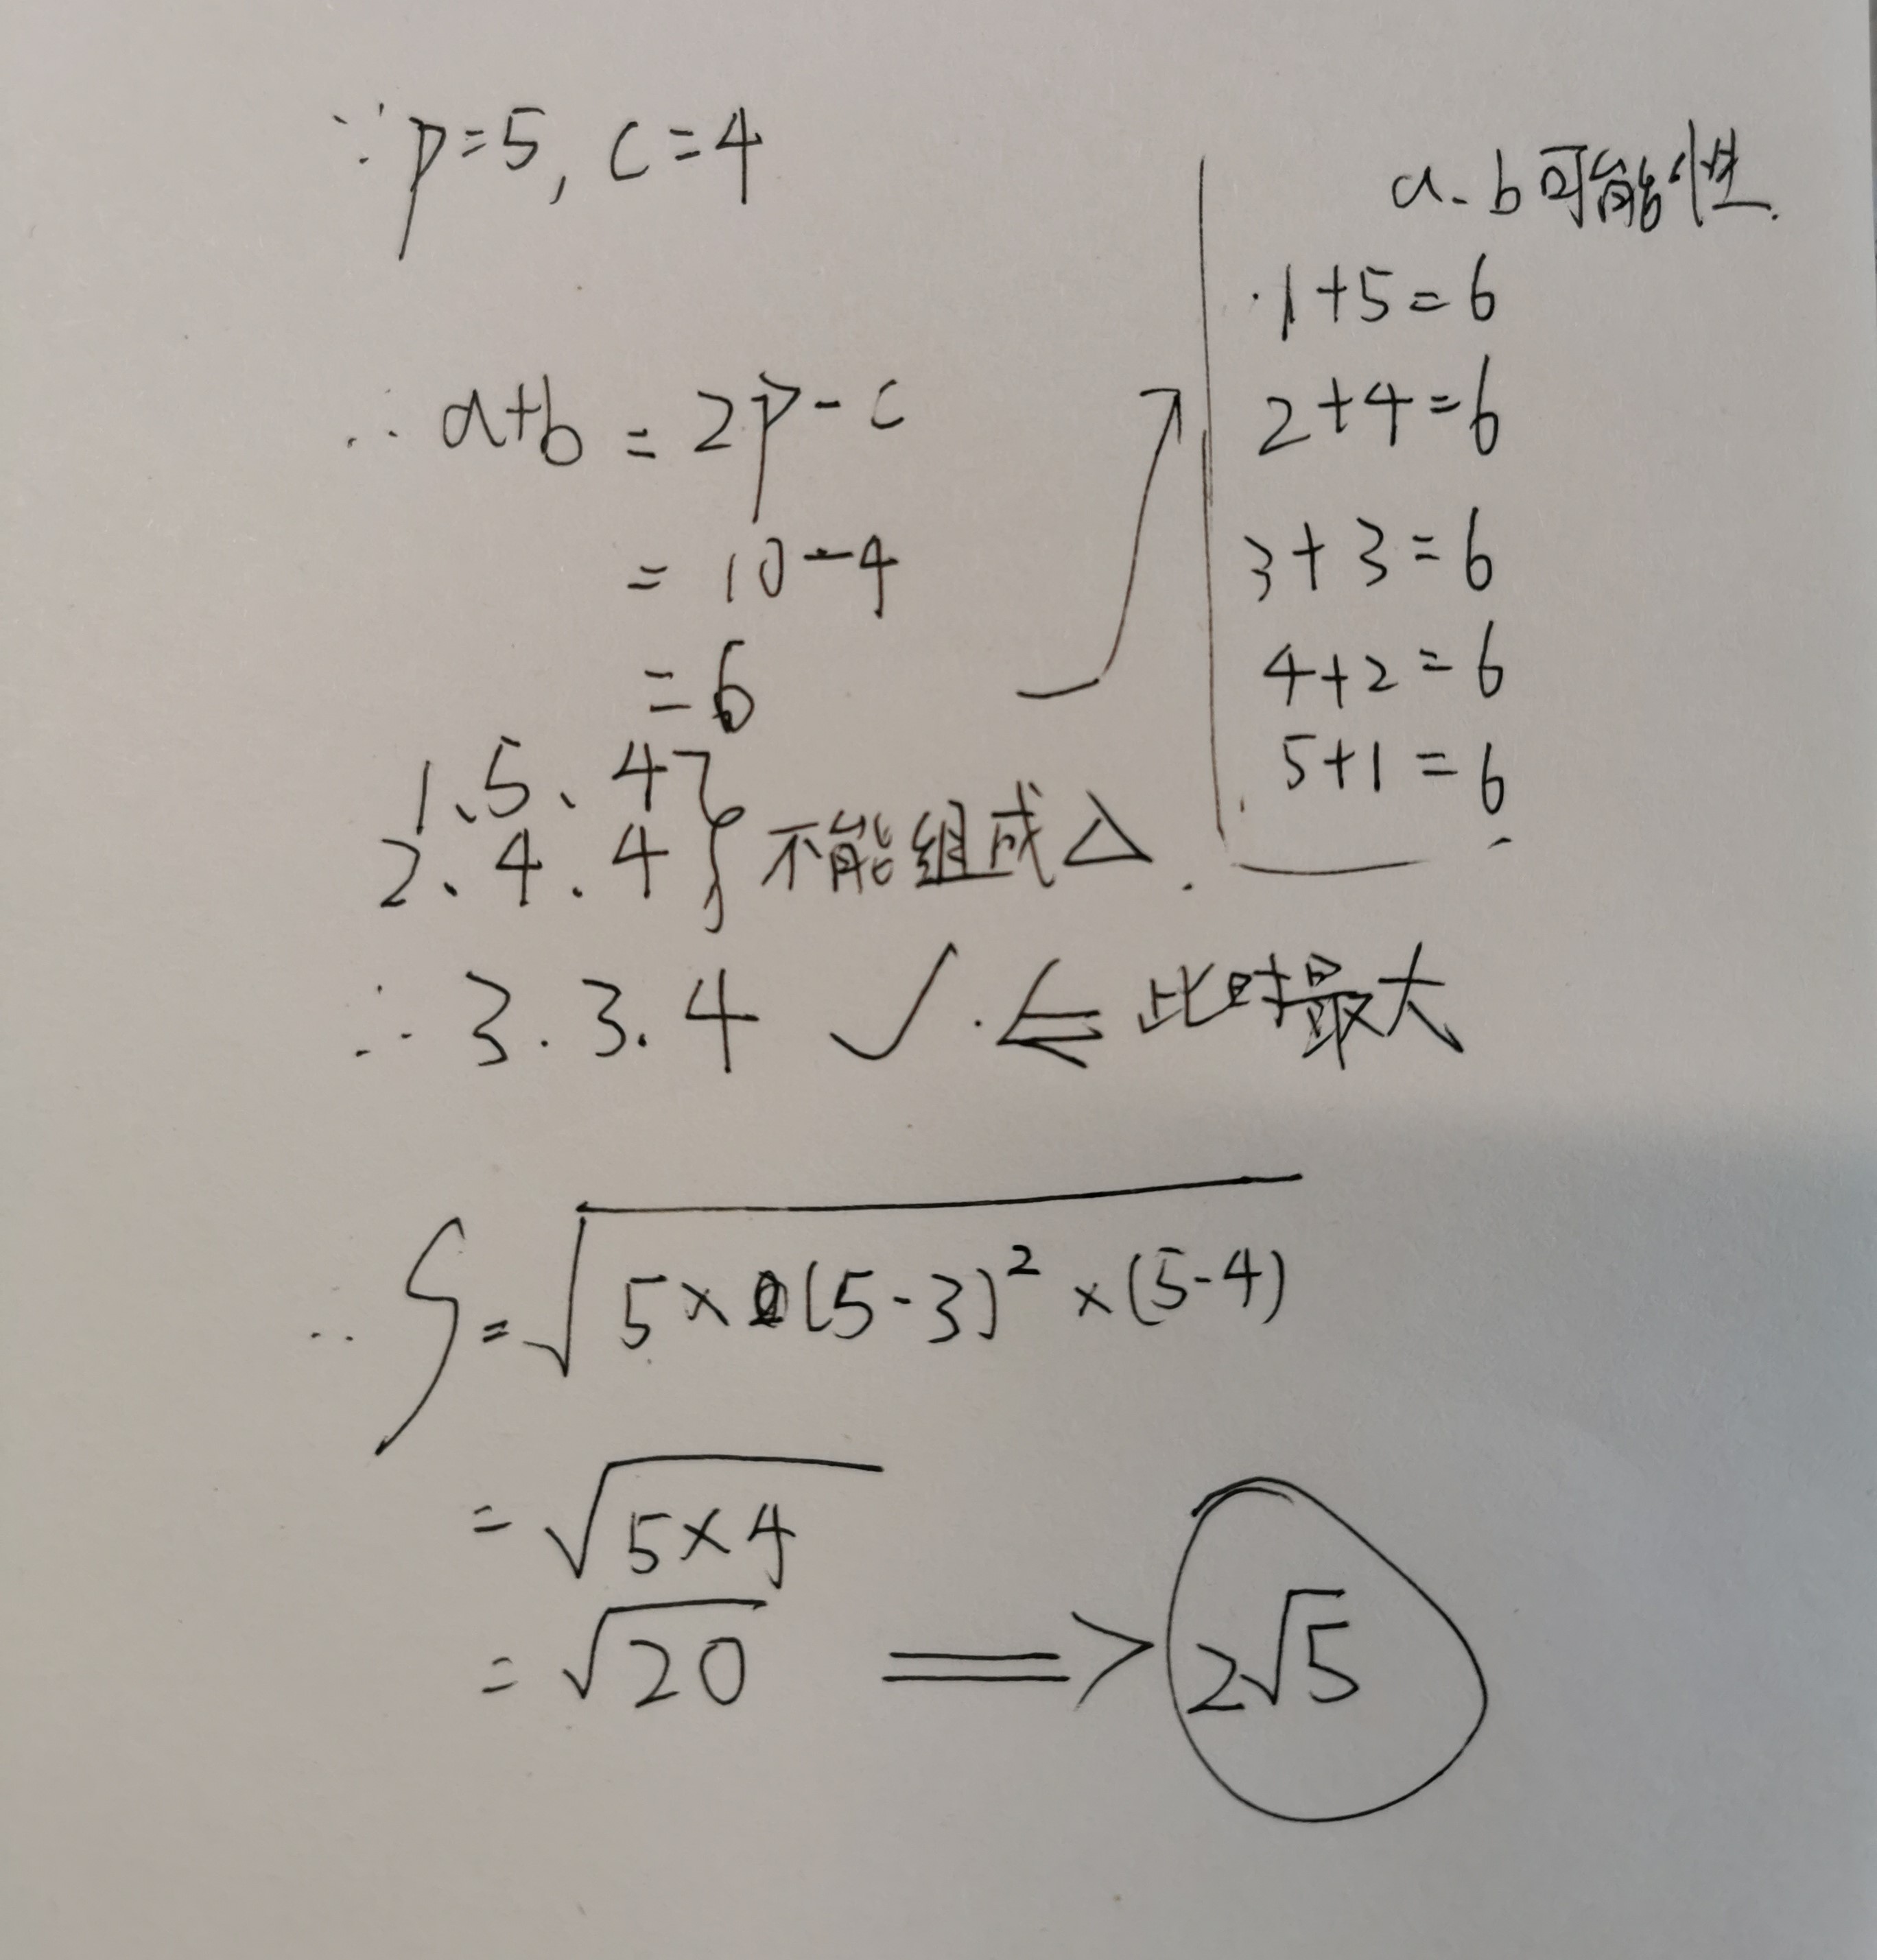 ∵p=5, c=4
∴a+b=2p-c
=10-4
=6
a、b可能性.
1+5=6
2+4=6
3+3=6
4+2=6
5+1=6
1、5、4
2、4、4} 不能组成△.
∴3.3.4 ✓. ⇐ 此时最大
∴S=√5×(5-3)²×(5-4)
=√5×4
=√20 ⟹ 2√5